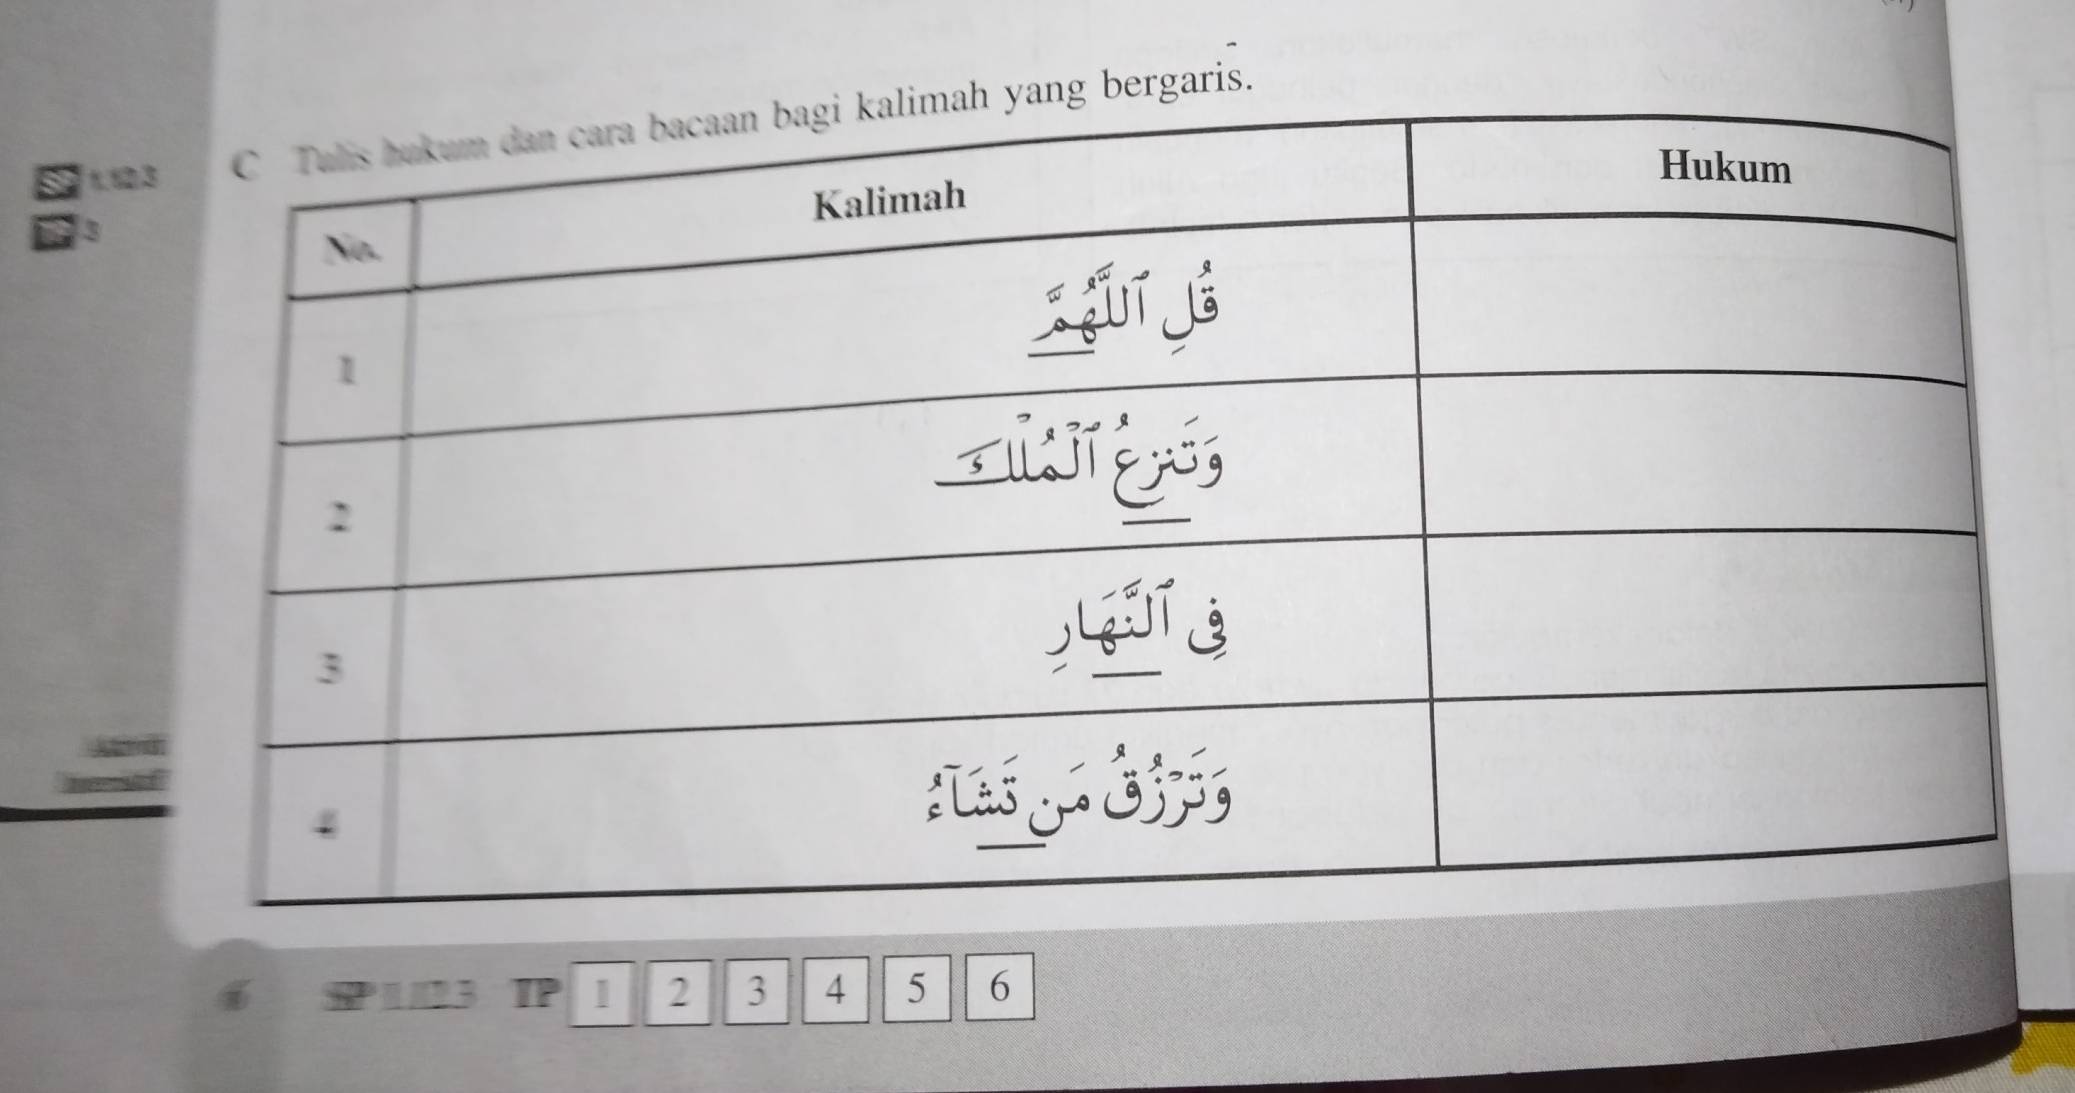 C Tulis hukum dan cara bacaan bagi kalimah yang bergaris.
SP 1.12.3
TP 3
No. Kalimah Hukum
1 قُلِ ٱللَّهُمَّ
2 وَتَنزِعُ ٱلْمُلْكَ
3 فِى ٱلنَّهَارِ
4 وَتَرْزُقُ مَن تَشَآءُ
6 SP 1.12.3 TP 1 2 3 4 5 6